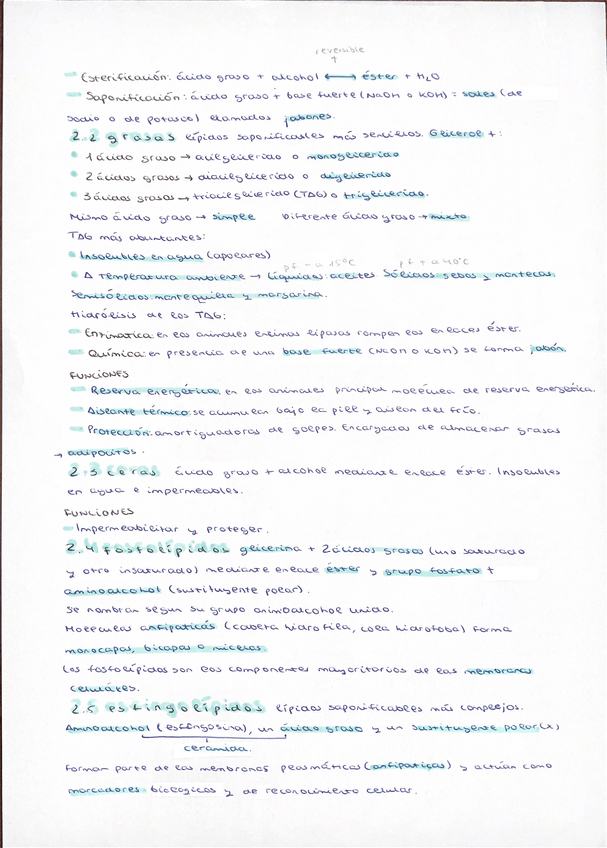 reversible
↑
- Esterificación: ácido graso + alcohol ⟷ éster + H2O
- Saponificación: ácido graso + base fuerte (NaOH o KOH) = sales (de
sodio o de potasio) llamados jabones.
2.2 grasas lípidos saponificables más sencillos. Glicerol +:
• 1 ácido graso → acilglicérido o monoglicérido
• 2 ácidos grasos → diacilglicérido o diglicérido
• 3 ácidos grasos → triacilglicérido (TAG) o triglicérido.
Mismo ácido graso → simple Diferente ácido graso → mixto
TAG más abuntantes:
• Insolubles en agua (apolares)
pf - a 15ºC pf + a 40ºC
• Δ Temperatura ambiente → Líquidas: aceites Sólidas sebos y mantecas.
Semisólidos: mantequilla y margarina.
Hidrólisis de los TAG:
- Enzimática: en los animales enzimas lipasas rompen los enlaces éster.
- Química: en presencia de una base fuerte (NaOH o KOH) se forma jabón.
FUNCIONES
- Reserva energética: en los animales principal molécula de reserva energética.
- Aislante térmico: se acumulan bajo la piel y aislan del frío.
- Protección: amortiguadoras de golpes. Encargados de almacenar grasas
→ adipocitos.
2.3 ceras ácido graso + alcohol mediante enlace éster. Insolubles
en agua e impermeables.
FUNCIONES
- Impermeabilitar y proteger.
2.4 fosfolípidos glicerina + 2 ácidos grasos (uno saturado
y otro insaturado) mediante enlace éster y grupo fosfato +
aminoalcohol (sustituyente polar).
Se nombran segun su grupo aminoalcohol unido.
Moléculas anfipaticas (cabeta hidrofila, cola hidrofoba) forma
monocapas, bicapas o micelas.
Los fosfolípidos son los componentes mayoritarios de las membranas
celulares.
2.5 esfingolípidos lípidos saponificables más complejos.
Aminoalcohol (esfingosina), un ácido graso y un sustituyente polar (x)
ceramida.
Forman parte de las membranas plasmáticas (anfipaticas) y actúan como
marcadores biologicos y de reconocimiento celular.